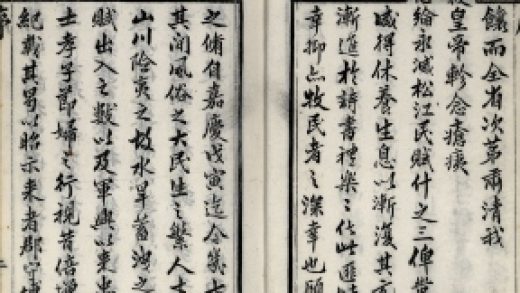 饟而全省次第肅清我
皇帝軫念瘡痍
綸永減松江民賦什之三俾
咸得休養生息以漸復其元
漸進於詩書禮樂之化此匪
幸抑亦牧民者之深幸也顧
之脩自嘉慶戊寅迄今幾七
其間風俗之大民生之繁人士
山川險夷之故水旱蓄洩之
賦出入之數以及軍興以來忠
士孝子節婦之行視昔倍增
紀載其曷以昭示来者郡守博